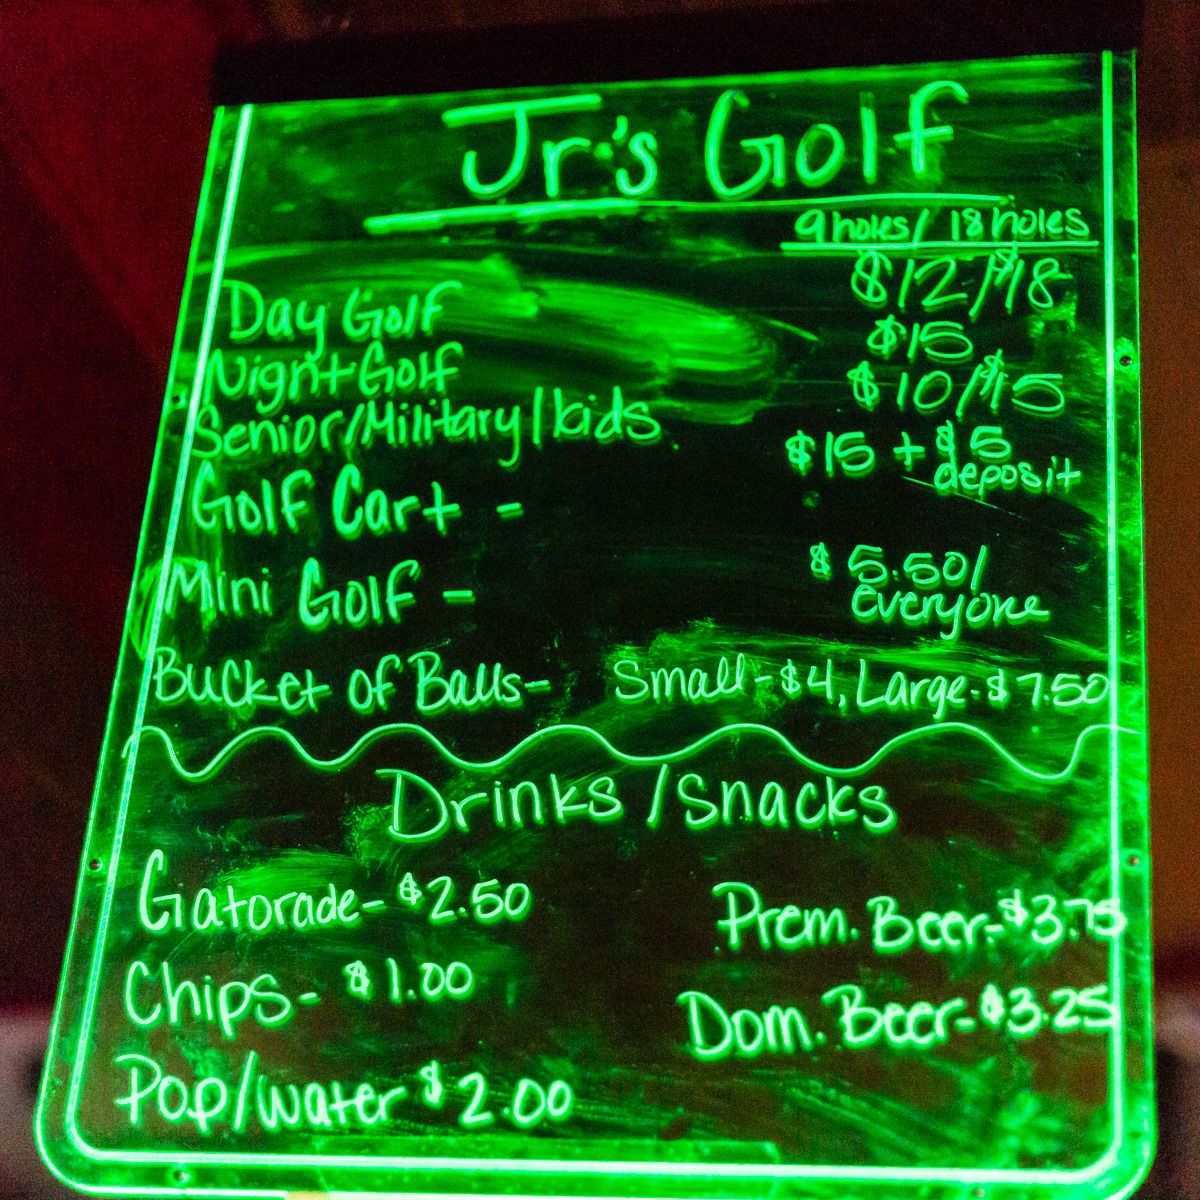 Jr's Golf
9 holes/ 18 holes
Day Golf $12/$18
Night Golf $15
Senior/Military/kids $10/$15
Golf Cart - $15 + $5
deposit
Mini Golf - $5.50/
everyone
Bucket of Balls- Small-$4, Large-$7.50
Drinks/Snacks
Gatorade- $2.50 Prem. Beer-$3.75
Chips- $1.00 Dom. Beer-$3.25
Pop/water $2.00